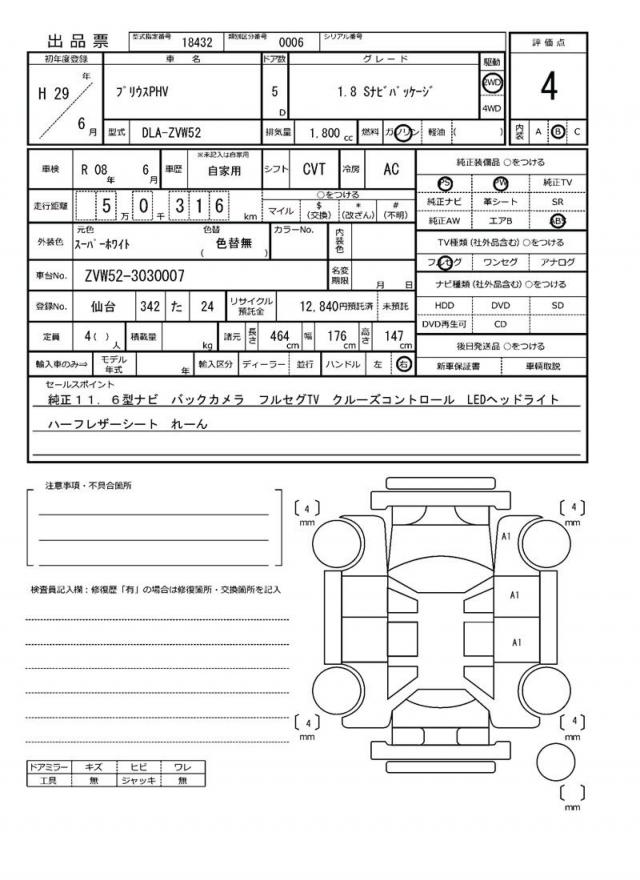 出品票 型式指定番号 18432 類別区分番号 0006 シリアル番号
初年度登録 車名 ドア数 グレード 駆動 評価点
H 29 年 6 月 プリウスPHV 5 D 1.8 Sナビパッケージ 2WD 4WD 4
型式 DLA-ZVW52 排気量 1,800 cc 燃料 ガソリン 軽油 ( ) 内装 A B C
車検 R 08 年 6 月 車歴 ※未記入は自家用 自家用 シフト CVT 冷房 AC 純正装備品 ○をつける
PS PW 純正TV
走行距離 5 万 0 千 3 1 6 km ○をつける 純正ナビ 革シート SR
マイル $ (交換) * (改ざん) # (不明) 純正AW エアB ABS
外装色 元色 スーパーホワイト 色替 ( 色替無 ) カラーNo. 内装色 TV種類 (社外品含む) ○をつける
フルセグ ワンセグ アナログ
車台No. ZVW52-3030007 名変期限 月 日 ナビ種類 (社外品含む) ○をつける
登録No. 仙台 342 た 24 リサイクル預託金 12,840円預託済 未預託 HDD DVD SD
DVD再生可 CD
定員 4( ) 人 積載量 kg 諸元 長さ 464 cm 幅 176 cm 高さ 147 cm 後日発送品 ○をつける
輸入車のみ⇒ モデル年式 年 輸入区分 ディーラー 並行 ハンドル 左 右 新車保証書 車輌取説
セールスポイント
純正11.6型ナビ バックカメラ フルセグTV クルーズコントロール LEDヘッドライト
ハーフレザーシート れーん
注意事項・不具合箇所
[ 4 ] mm [ 4 ] mm
A1
検査員記入欄：修復歴「有」の場合は修復箇所・交換箇所を記入
A1
A1
[ 4 ] mm [ 4 ] mm
ドアミラー キズ ヒビ ワレ
工具 無 ジャッキ 無
[ ] mm